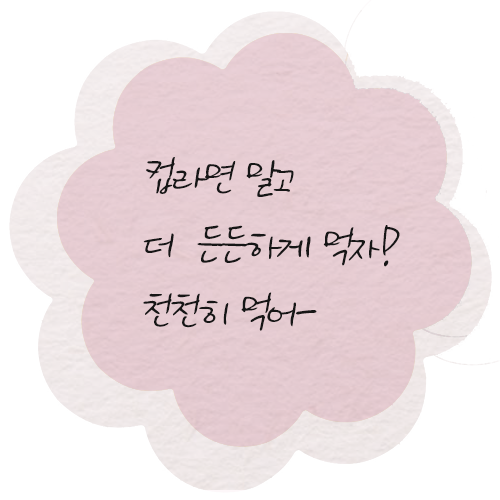 컵라면 말고
더 든든하게 먹자!
천천히 먹어~